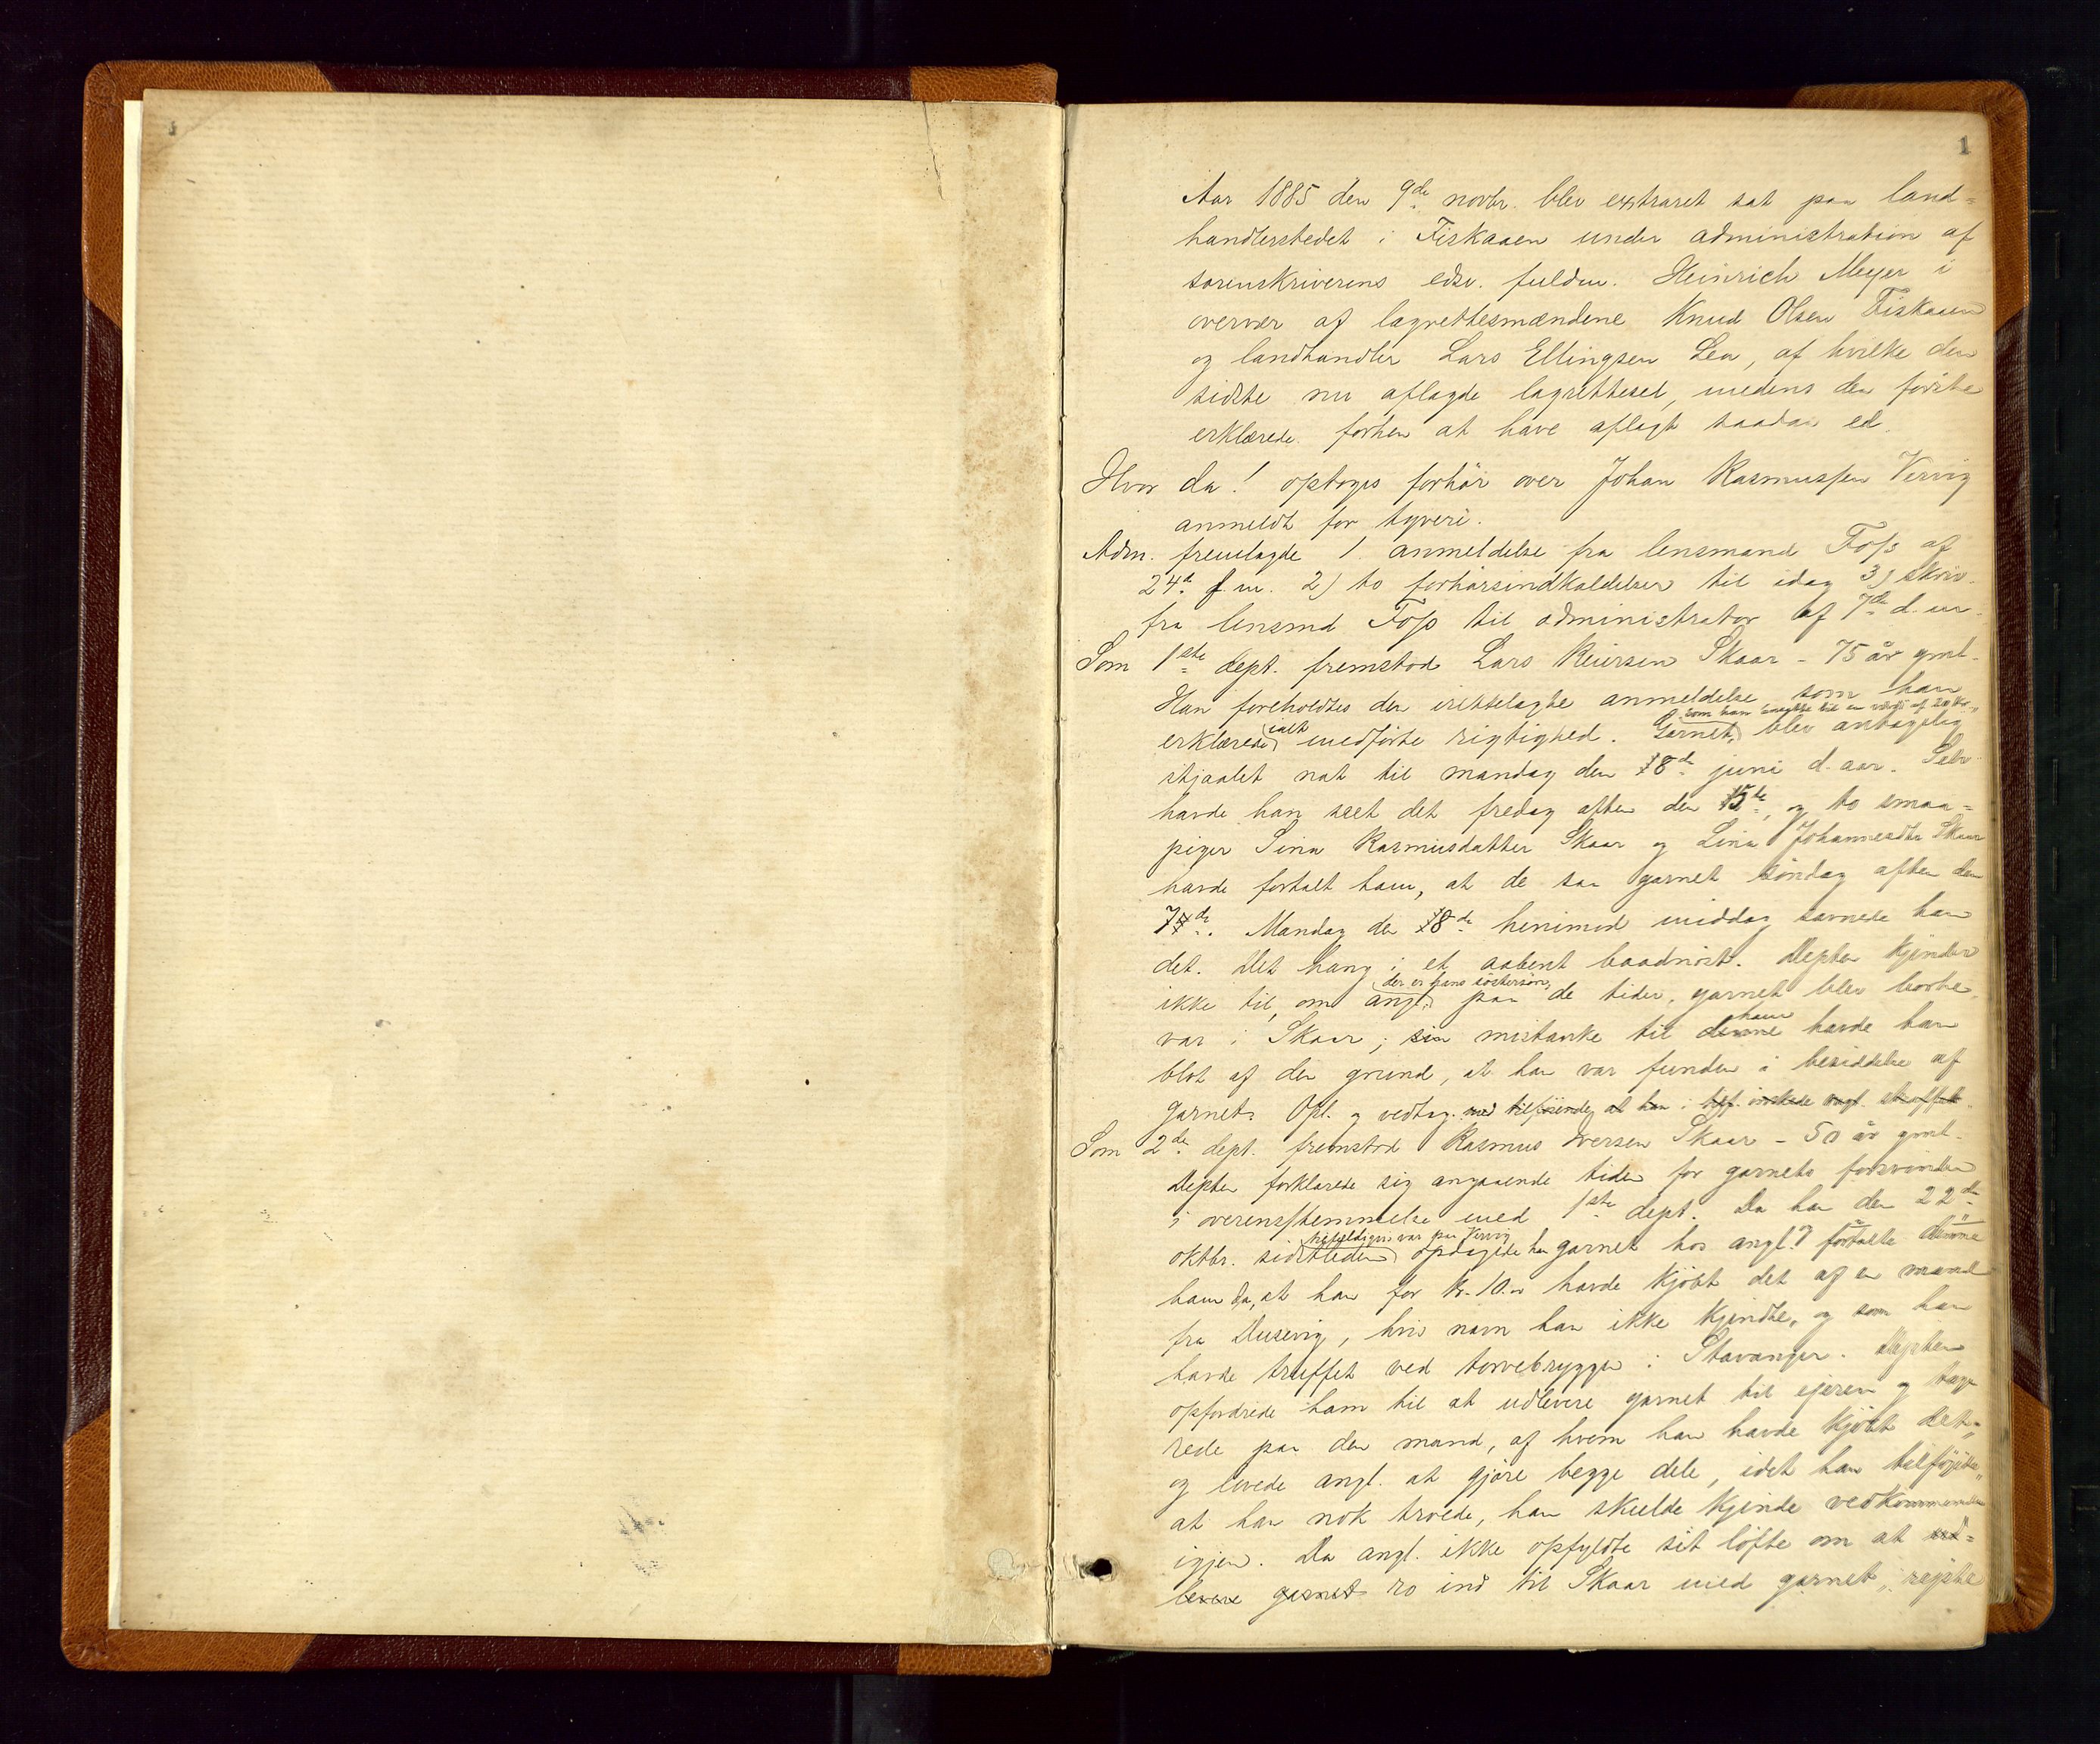 1
Aar 1885 den 9de novbr. blev extraret sat paa land=
handlerstedet i Fiskaaen under administration af
sorenskriverens edsv. fuldm. Heinrich Meyer i
overvær af lagrettesmændene Knud Olsen Fiskaaen
og landhandler Lars Ellingsen Lea, af hvilke den
sidste nu aflagde lagretteed, medens den første
erklærede forhen at have aflagt saadan ed.
Hvor da! optoges forhør over Johan Rasmussen Vervig
anmeldt for tyveri.
Adm. fremlagde 1. anmeldelse fra lensmand Foss af
24de f.m. 2) to forhørsindkaldelser til idag 3) skriv.
fra lensmd Foss til administrator af 7de d.m.
Som 1ste dept. fremstod Lars Reiersen Skaar - 75 år gml.
Han foreholdtes den irettelagte anmeldelse som han
erklærede ialt medførte rigtighed. Garnet, som han ansatte til en værdi af 20 kr., blev antagelig
stjaalet nat til mandag den 8de juni d. aar. Selv
havde han seet det fredag aften den 5te, og to smaa=
piger Sina Rasmusdatter Skaar og Lina Johannesdtr Skaar
havde fortalt ham, at de saa garnet søndag aften den
7de. Mandag den 8de henimod middag savnede han
det. Det hang i et aabent baadnøst. Depten kjender
ikke til, om angl., der er hans søstersøn, paa de tider, garnet blev borte,
var i Skaar; sin mistanke til denne ham havde han
blot af den grund, at han var funden i besiddelse af
garnet. Opl. og vedtag. med tilføiende at han i tilf. ønskede angl. straffet.
Som 2de dept. fremstod Rasmus Iversen Skaar - 50 år gml.
Depten forklarede sig angaaende tiden for garnets forsvinden
i overensstemmelse med 1ste dept. Da han den 22de
oktbr. sidstleden tilfældigvis var paa Vervig opdagede han garnet hos angl. fortalte denne
ham da, at han for kr. 10.00 havde kjøbt det af en mand
fra Dusevig, hvis navn han ikke kjendte, og som han
havde truffet ved torvebryggen i Stavanger. Depten
opfordrede ham til at udlevere garnet til ejeren og tage
rede paa den mand, af hvem han havde kjøbt det,
og lovede angl. at gjøre begge dele, idet han tilføjede,
at han nok troede, han skulde kjende vedkommende
igjen. Da angl. ikke opfyldte sit løfte om at ud=
levere garnet ro ind til Skaar med garnet, rejste